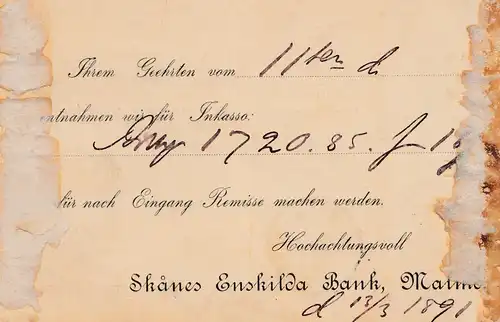 Ihrem Geehrten vom 11ten d
entnahmen wir für Inkasso:
1720.85.
für nach Eingang Remisse machen werden.
Hochachtungsvoll
Skånes Enskilda Bank, Malmö
d 13/3 1891